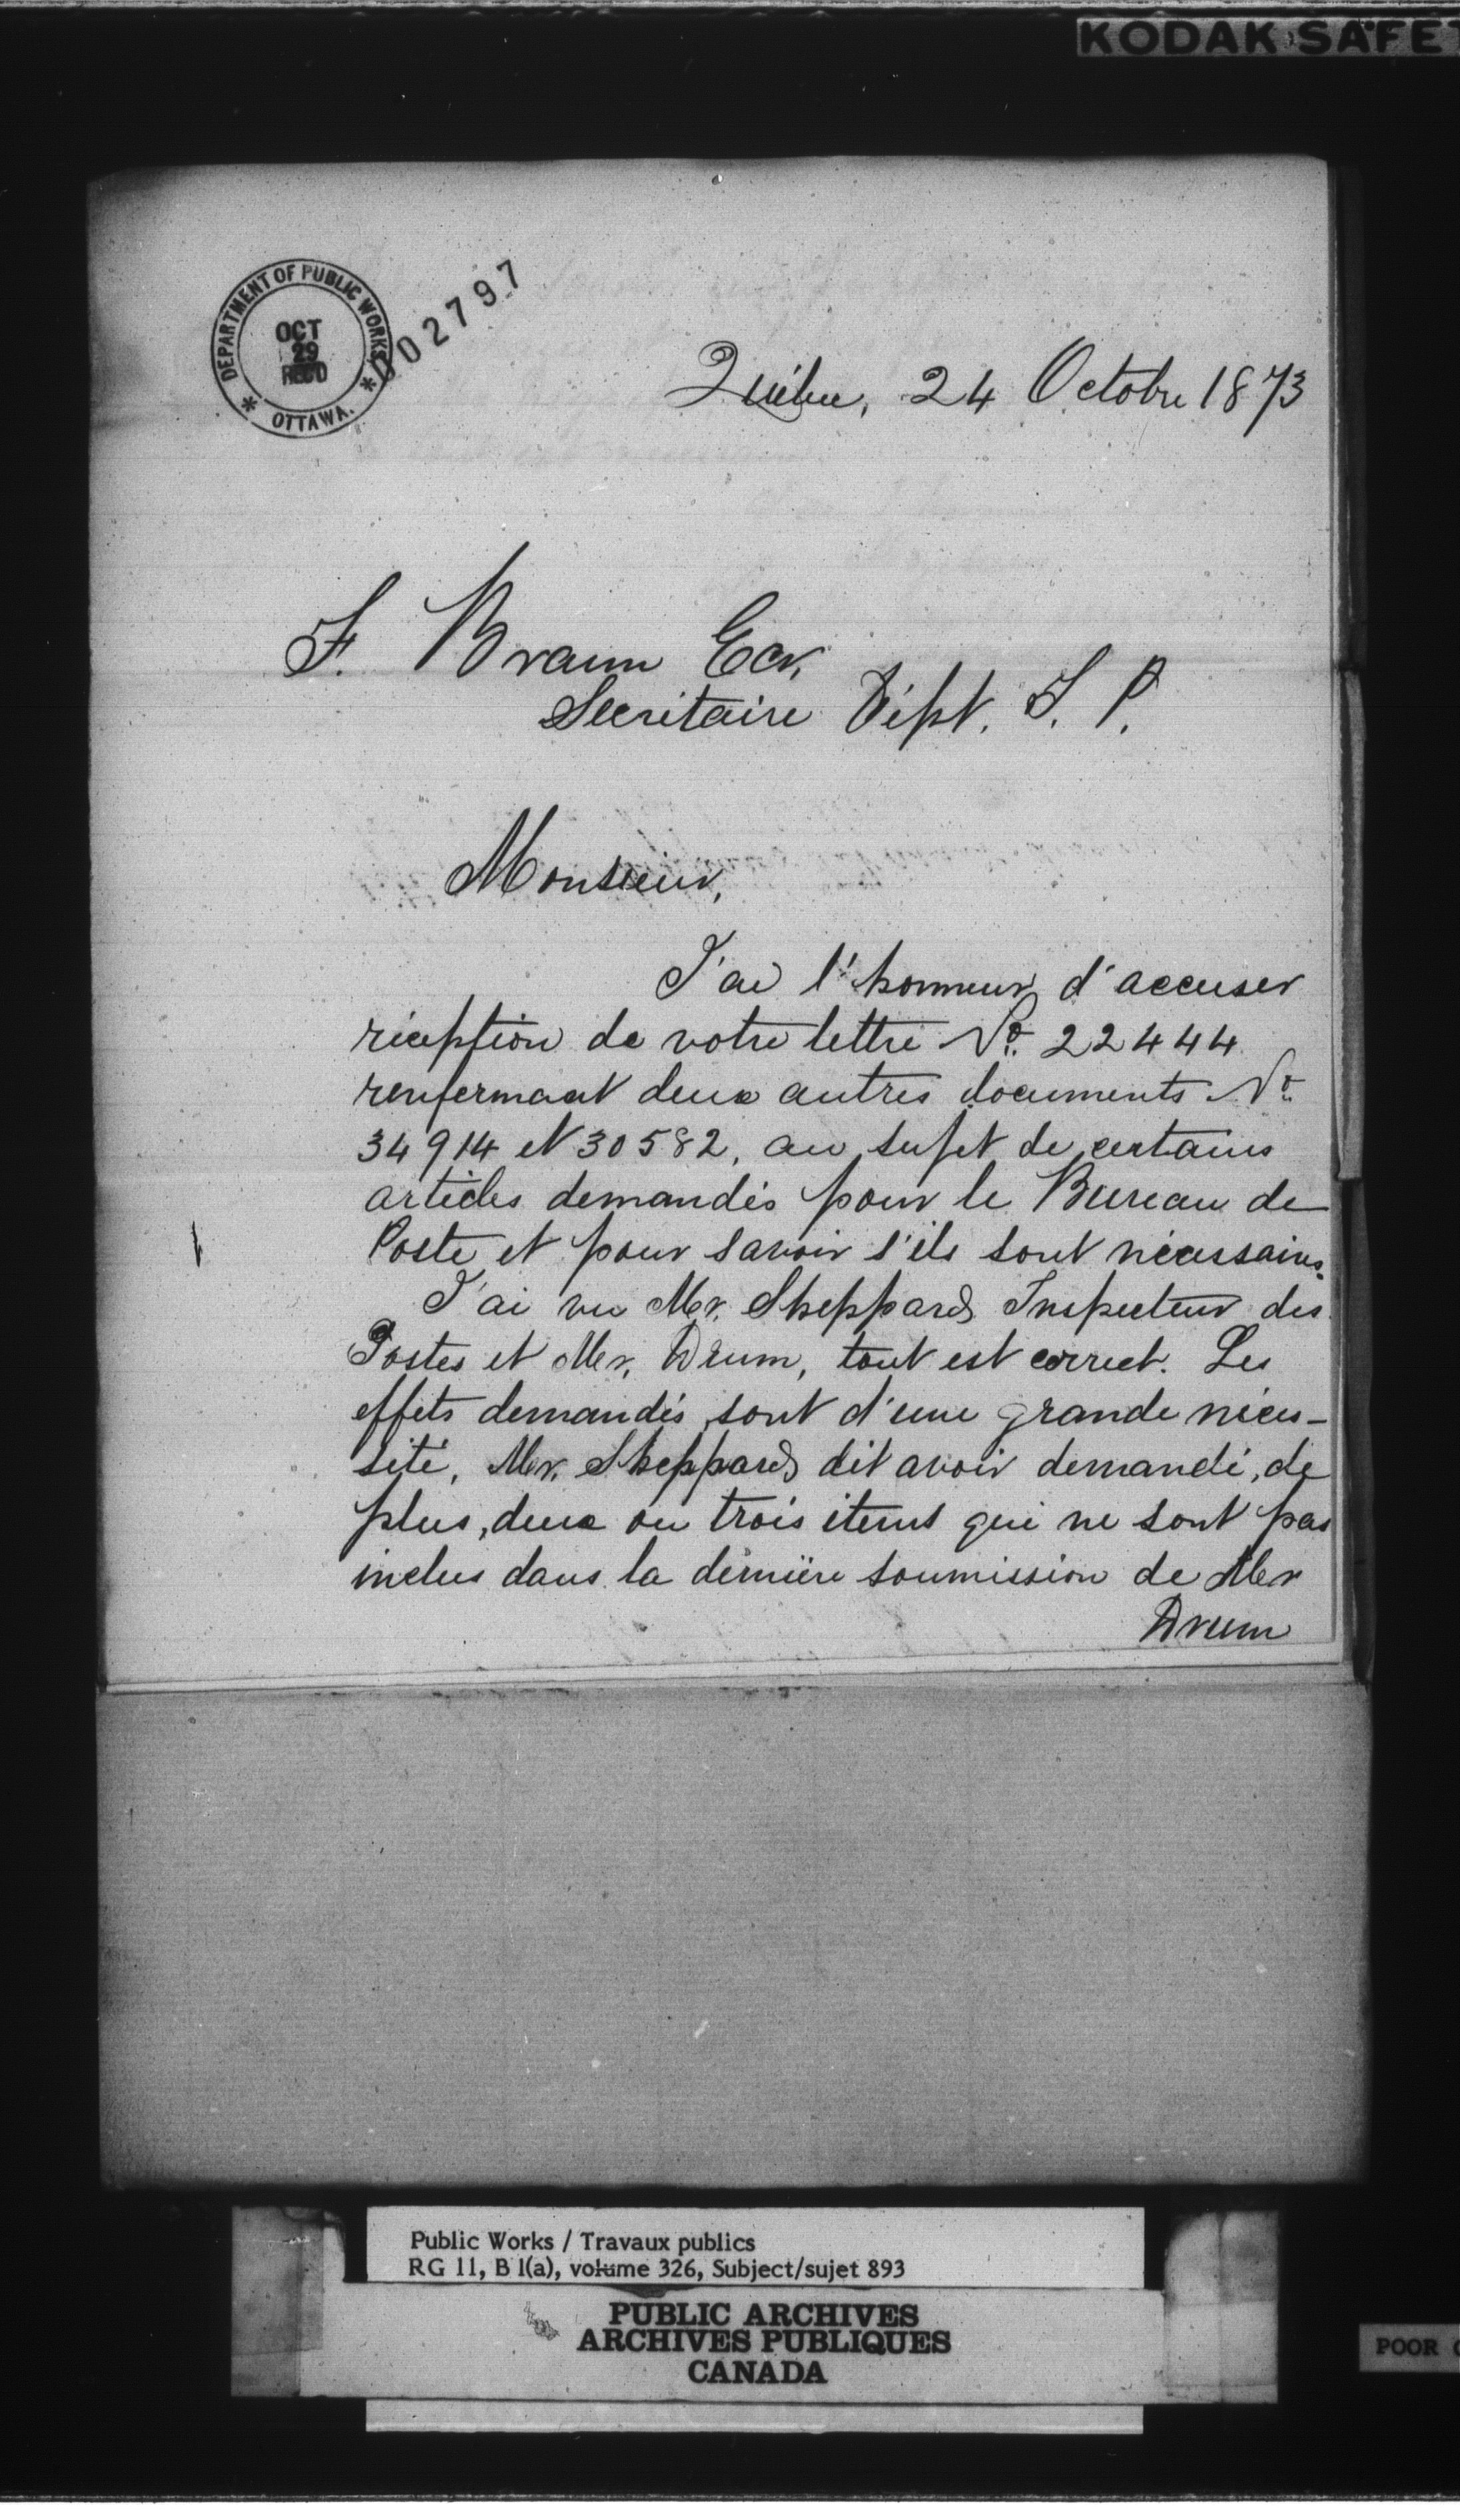 KODAK SAFET
DEPARTMENT OF PUBLIC WORKS
OCT
29
REC'D
* OTTAWA. *
002797
Québec, 24 Octobre 1873
F. Braun Ecr,
Secrétaire Dépt. T. P.
Monsieur,
J'ai l'honneur d'accuser
réception de votre lettre No. 22444
renfermant deux autres documents No.
34914 et 30582, au sujet de certains
articles demandés pour le Bureau de
Poste et pour savoir s'ils sont nécessaires.
J'ai vu Mr. Sheppard Inspecteur des
Postes et Mr. Drum, tout est correct. Les
effets demandés sont d'une grande néces-
sité, Mr. Sheppard dit avoir demandé, de
plus, deux ou trois items qui ne sont pas
inclus dans la dernière soumission de Mr
Drum
Public Works / Travaux publics
RG 11, B 1(a), volume 326, Subject/sujet 893
PUBLIC ARCHIVES
ARCHIVES PUBLIQUES
CANADA
POOR